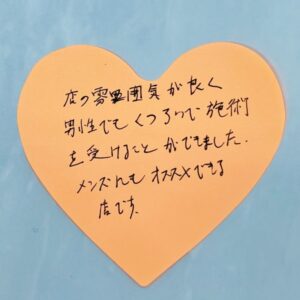 店の雰囲気が良く
男性でもくつろいで施術
を受けることができました.
メンズにもオススメできる
店です.